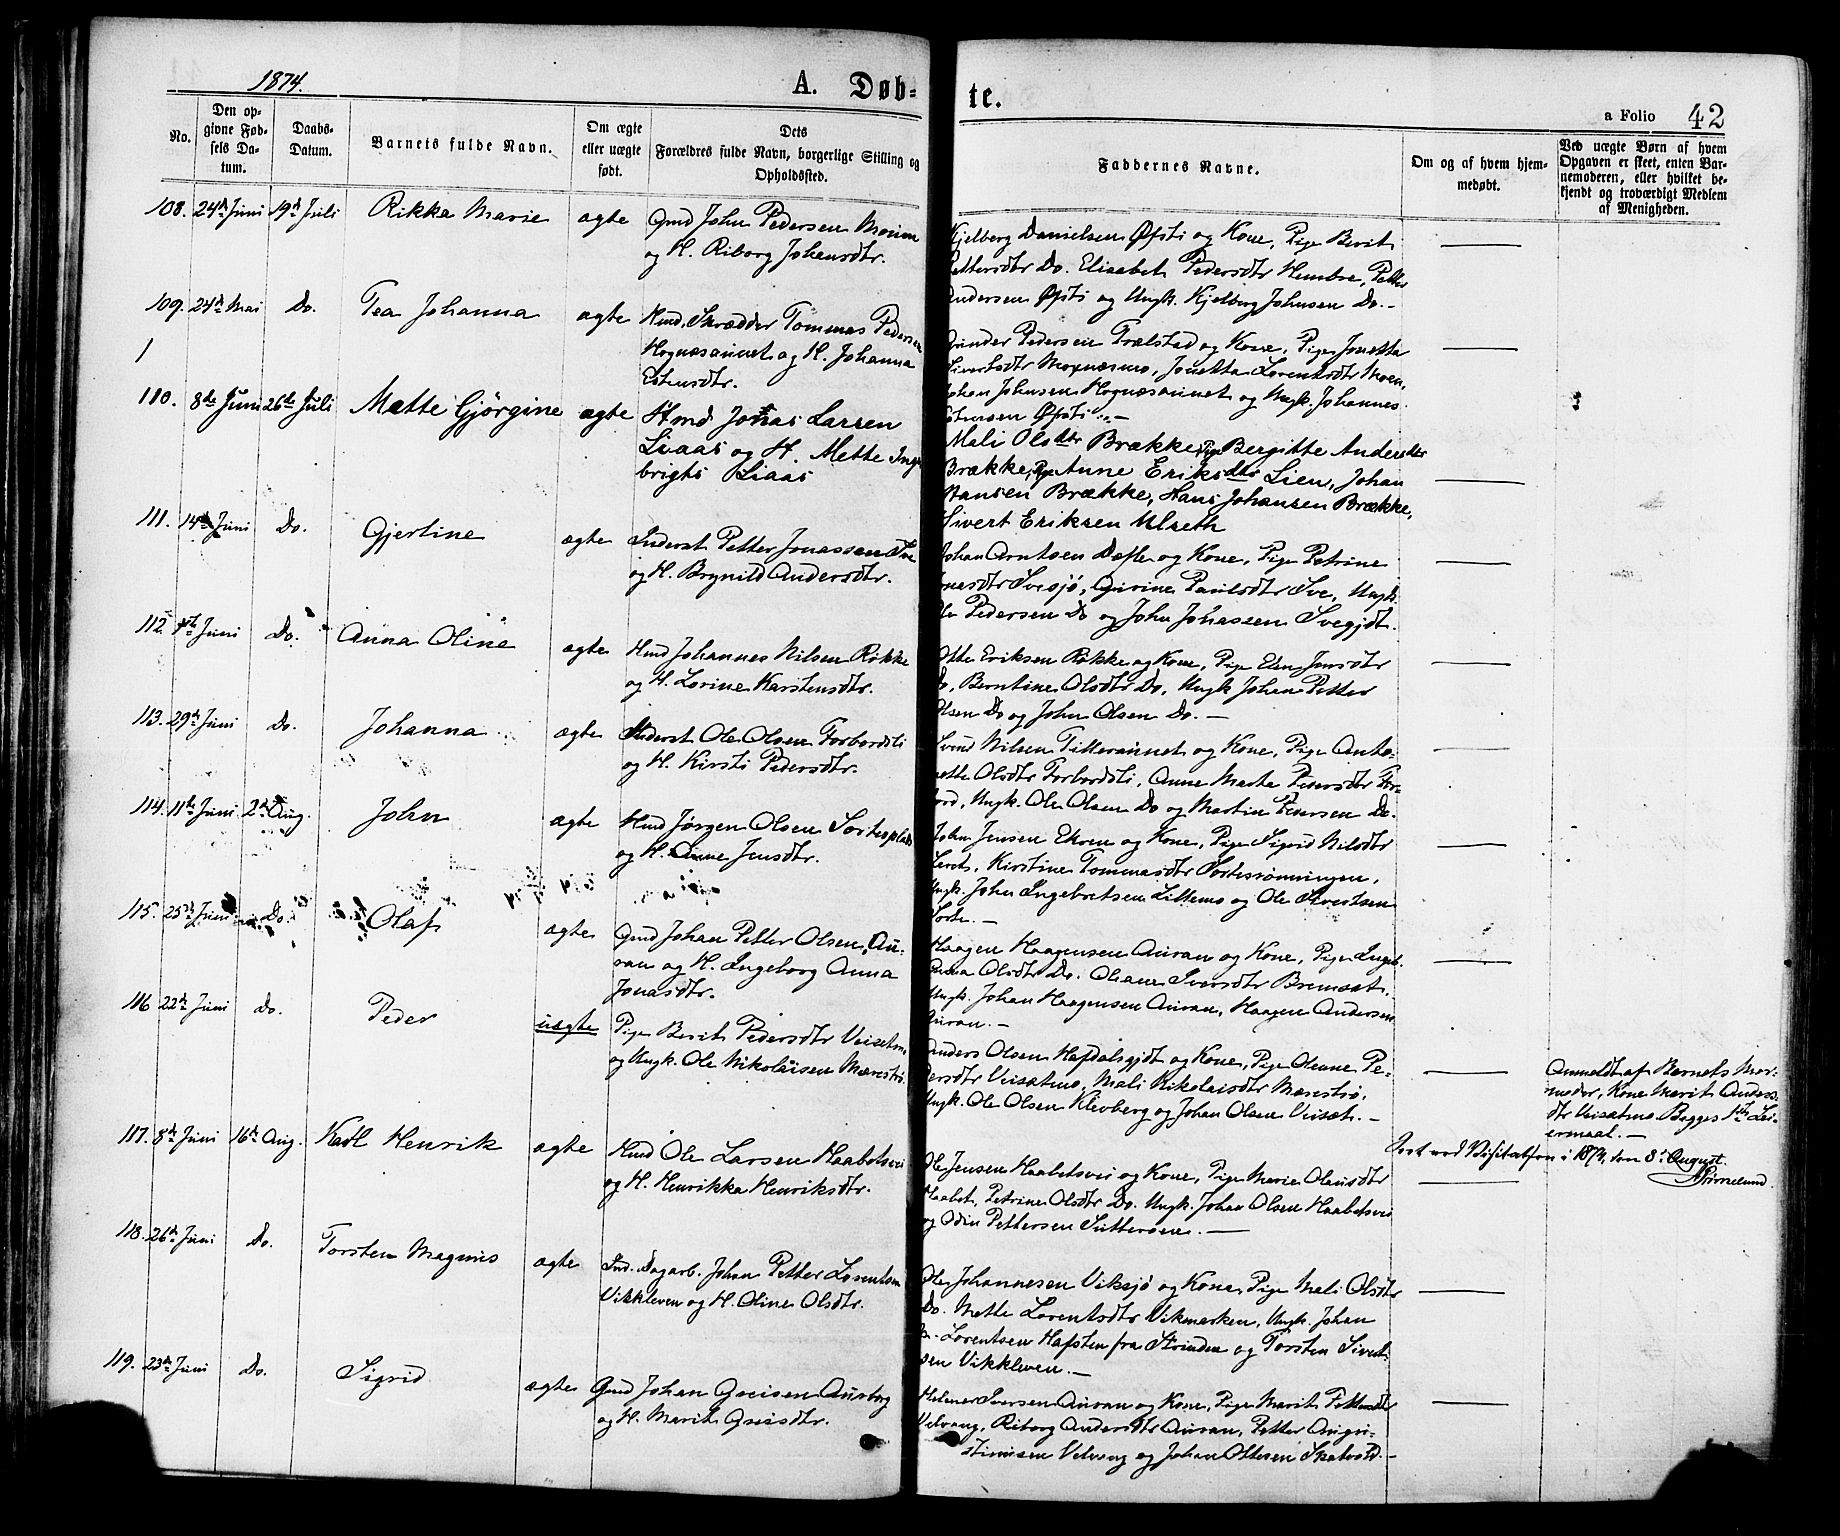 1874.
A. Døb-
te.
a Folio 42
No.
Den op-
givne Fød-
sels Da-
tum.
Daabs-
Datum.
Barnets fulde Navn.
Om ægte
eller uægte
født.
Dets
Forældres fulde Navn, borgerlige Stilling og
Opholdssted.
Faddernes Navne.
Om og af hvem hjem-
medøbt.
Ved uægte Børn af hvem
Opgaven er skeet, enten Bar-
nemoderen, eller hvilket be-
kjendt og troværdigt Medlem
af Menigheden.
108. 24de Juni 19de Juli Rikka Marie ægte Gmd John Pedersen
og H. Riborg Johnsdtr.
Kjelberg Danielsen Øfsti og Kone, Pige Berit
Pettersdtr Do. Elisabet Pedersdtr Hembre, Petter
Andersen Øfsti og Ungk. Kjelberg Johnsen Do. -
109. 24de Mai Do. Tea Johanna ægte Hmd. Skrædder Tommas Pedersen
Hognæsaunet og H. Johanna
Estensdtr.
Pedersen Trælstad og Kone, Pige Jonetta
Sivertsdtr Moxnæsmo, Jonetta Lorentsdtr Moen,
Johan Johnsen Hognæsaunet og Ungk. Johannes
Estensen Øfsti. -
110. 8de Juni 26de Juli Mette Gjørgine ægte Hmd Jonas Larsen
Liaas og H. Mette Inge
brigts Liaas
Mali Olsdtr Brække, Pige Bergitte Andersdtr
Brække, Pige Anne Eriksdtr Lien, Johan
Hansen Brække, Hans Johansen Brække,
Sivert Eriksen Ulseth
111. 14de Juni Do. Gjertine ægte Inderst Petter Jonassen Sve
og H. Brynild Andersdtr.
Johan Arntsen Dæfle og Kone, Pige Petrine
Jonasdtr Svesjø, Gurine Paulsdtr Sve, Ungk.
Ole Pedersen Do og John Johassen Svegjdt.
112. 1ste Juni Do. Anna Oline ægte Hmd Johannes Nilsen Røkke
og H. Lorine Karstensdtr.
Otte Eriksen Røkke og Kone, Pige Elen Jensdtr
Do, Berntine Olsdtr Do, Ungk Johan Petter
Olsen Do og John Olsen Do. -
113. 29de Juni Do. Johanna ægte Inderst Ole Olsen Forbordsli
og H. Kirsti Pedersdtr.
Svend Nilsen Titteraunet og Kone, Pige Anto-
nette Olsdtr Forbordsli, Anne Marta Pedersdtr For-
bord, Ungk. Ole Olsen Do og Martin Pedersen Do.
114. 11te Juni 2de Aug. John ægte Hmd Jørgen Olsen Sorteplads
og H. Anne Jensdtr.
John Jensen Ekren og Kone, Pige Sigrid Nilsdtr
Kirstine Tommasdtr Sorterønningen,
Ungk. John Ingebretsen Littemo og Ole Sivertsen
Sorte. -
115. 25de Juni Do. Olaf ægte Gmd Johan Petter Olsen Au-
ran og H. Ingeborg Anna
Jonasdtr.
Haagen Haagensen Auran og Kone, Pige Ingeb.
Anna Olsdtr Do. Oliane Iversdtr Bremsæt,
Ungk. Johan Haagensen Auran, Haagen Andersen
Auran. -
116 22de Juni Do. Peder uægte Pige Berit Pedersdtr Veisetmo
og Ungk. Ole Nikolaisen Mærestrø.
Anders Olsen Hafdalsgjdt og Kone, Pige Oleane Pe-
dersdtr Veisætmo, Mali Nikolaisdtr Mærestrø,
Ungk. Ole Olsen Klevberg og Johan Olsen Veisæt. -
Anmeldt af Barnets Mor-
moder, Kone Marit Anders-
dtr Veisætmo. Begges 1ste Lei-
ermaal. -
117. 8de Juni 16de Aug. Karl Henrik ægte Hmd Ole Larsen Haabetsvei
og H. Henrikka Henriksdtr.
Ole Jensen Haabetsvei og Kone, Pige Marie Olausdtr
Haabet, Petrine Olsdtr Do. Ungk. Johan Olsen Haabetsvei
og Odin Pettersen Sutterøen. -
ved Visitatsen i 1874, den 8de August.
118. 26de Juni Do. Torsten Magnus ægte Ind. Dagarb. Johan Petter Lorentsen
Vikkleven og H. Oline Olsdtr.
Ole Johannesen Viksjø og Kone, Pige Mali Olsdtr
Do. Mette Lorentsdtr Vikmarken, Ungk. Johan
Lorentsen Hafsten fra Strinden og Torsten Sivert-
sen Vikkleven. -
119. 23de Juni Do. Sigrid ægte Gmd Johan Greisen Aurborg
og H. Marit Greisdtr.
Helmer Iversen Auran og Kone, Pige Marit Pettersdtr
Velvang, Riborg Andersdtr Auran, Petter Augu-
stinusen Velvang og Johan Ottesen Skatvold. -